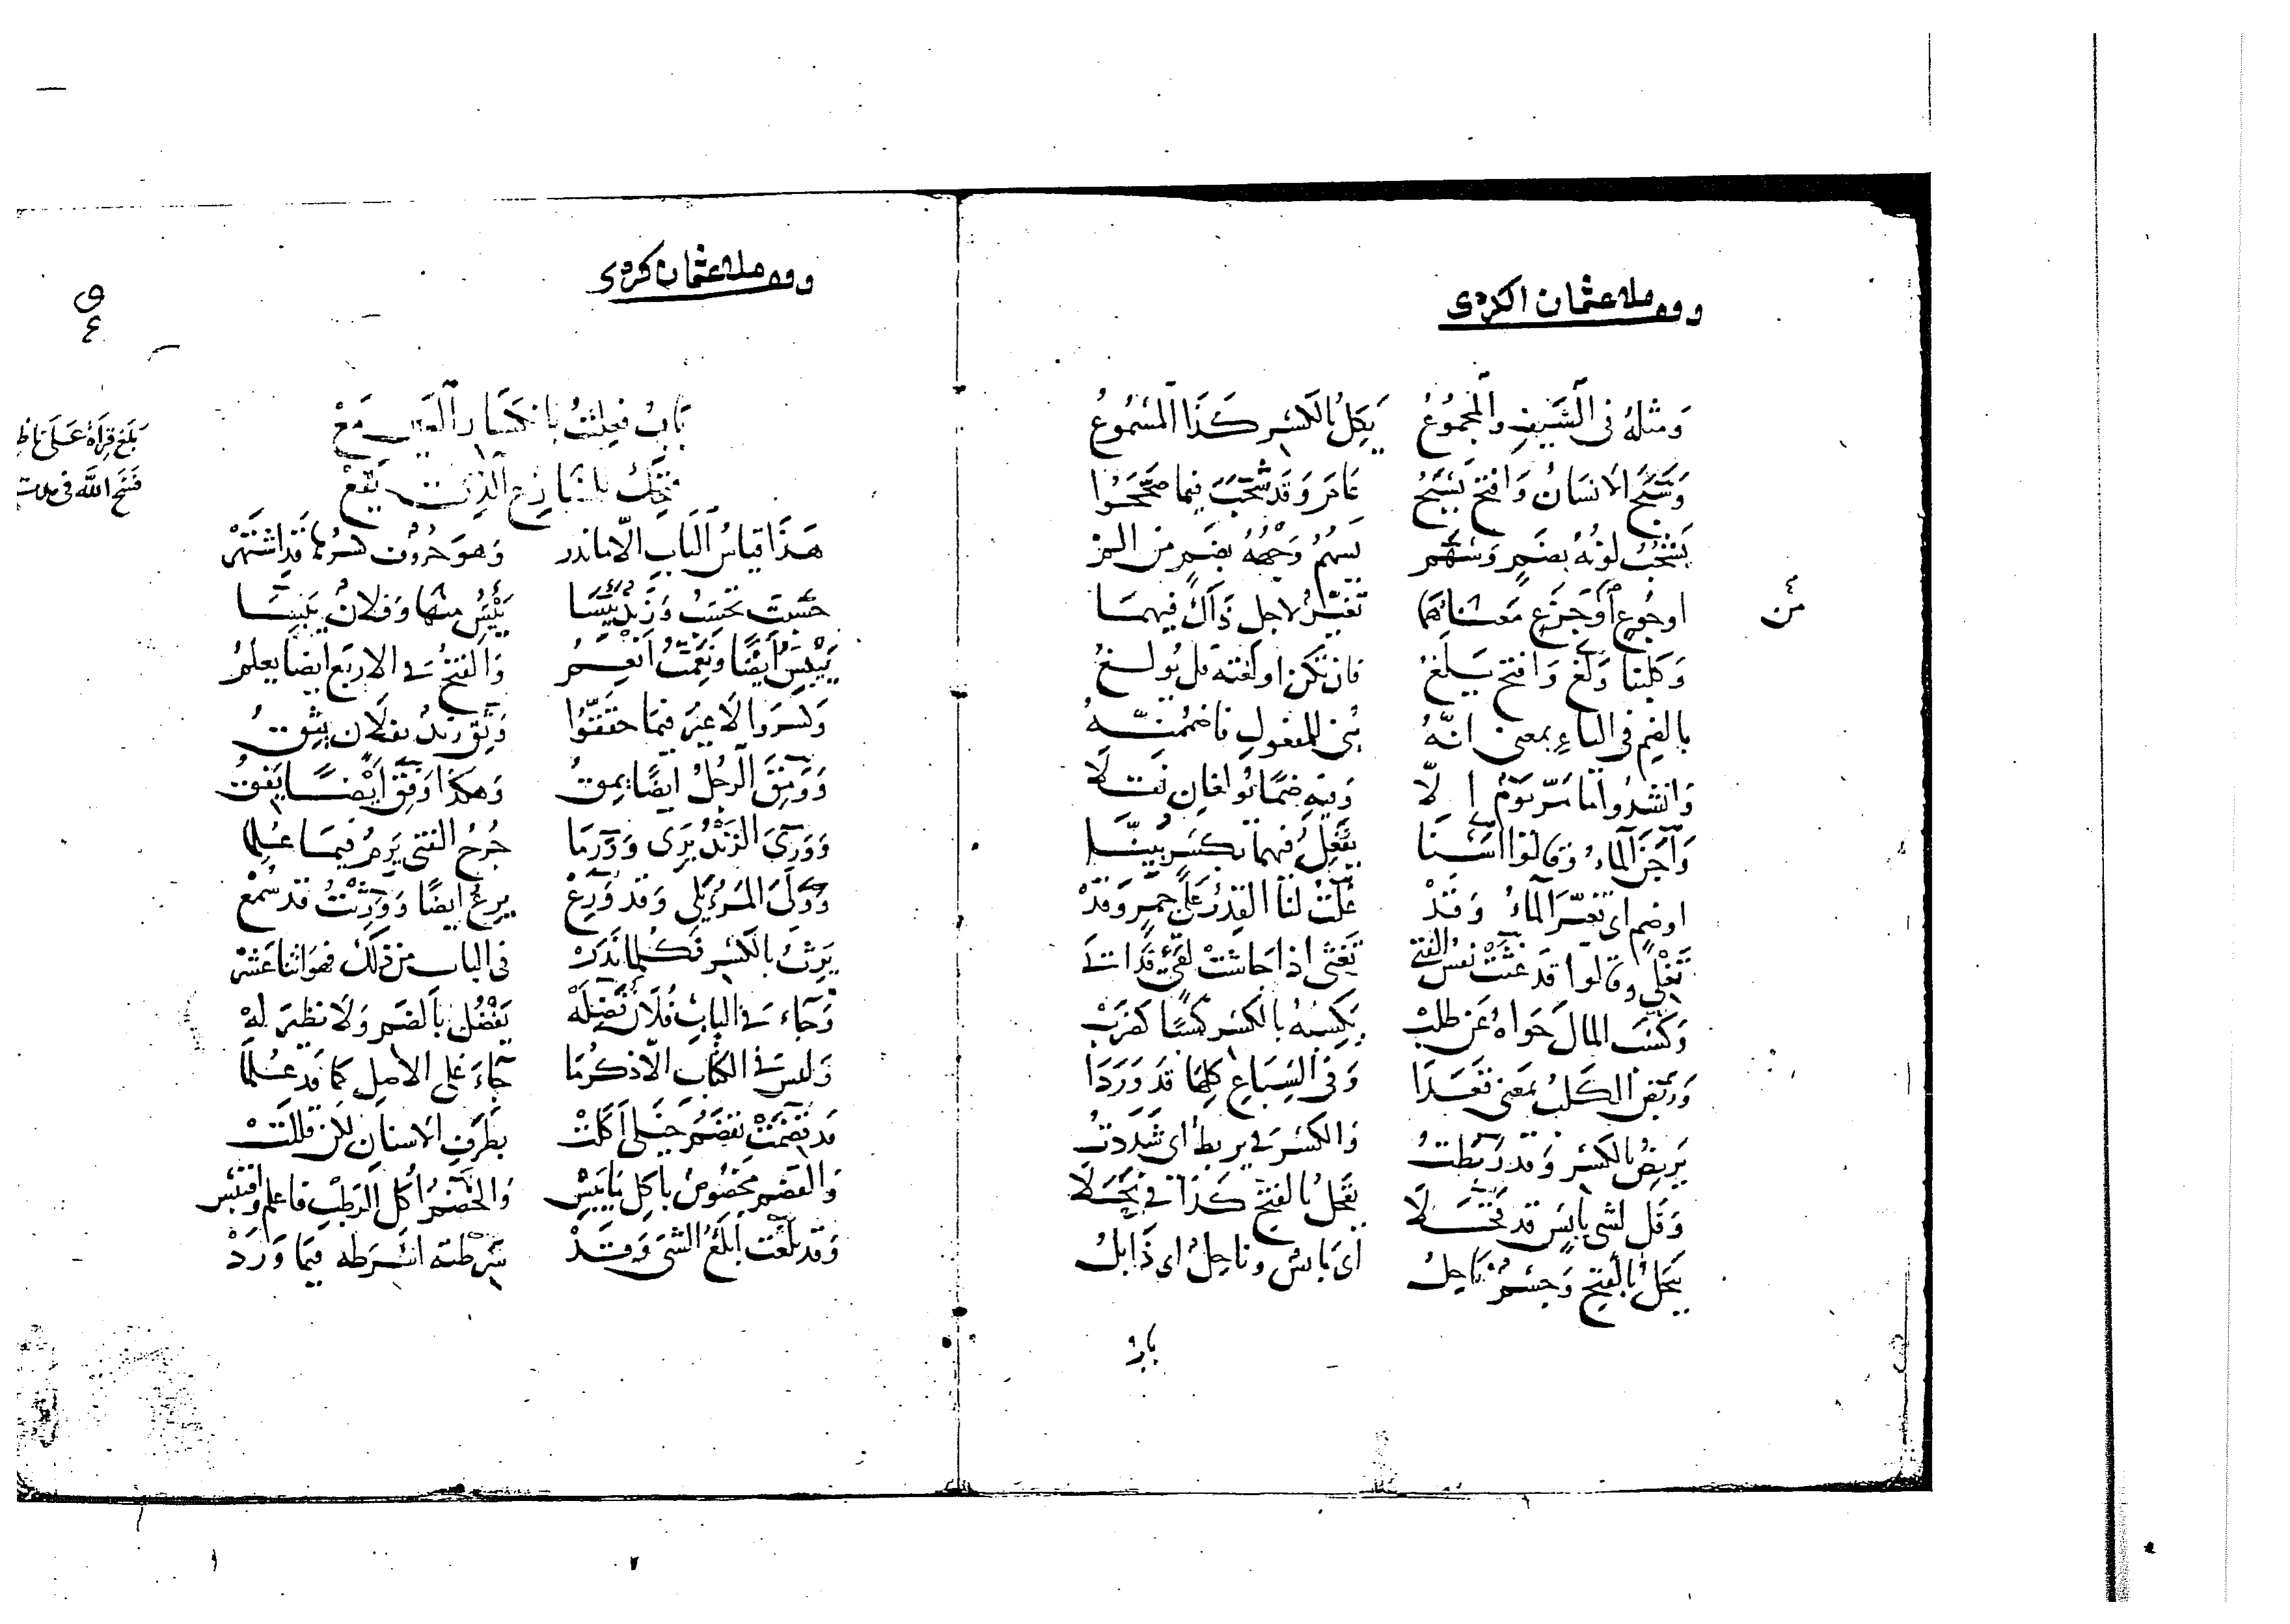 ووه مله عثمان الكردى
وَمثلهُ فى الشَّيىءِ والمجموُعُ يَكِلُّ بالكَسْرِ كَذَا المَسْمُوعُ
وَسَبَحَ الانسَانُ وَافتح يَسْبَحُ عَامَ وَقَد شَحَبَ فيما صَحَّحُوا
يَشْحُبُ لَونُهُ بضَمٍ وَسَهَم يَسهُمُ وَجْههُ بضَمٍ من
اوجُوعٍ أوجَزَعٍ مَعنَاهُمَا تغَيُّرٌ لاجلِ ذَاكَ فيهمَا
وَكلبُنا وَلَغَ وَافتح يَلَغُ فان تكن اولغتَه قل يُولَغُ
بالضم فى الياءِ بمعنى انَّهُ بُنى للمفعولِ فاضمُمَنَّهُ
وَانشدُوا مَا مَرّ يَومٌ إلّا وَفيهِ ضمًّا يُوالغانِ نقَلَا
وَأجَنَ الماءُ وقالُوا اسَنَا يَفعِلُ فيهما بكَسرٍ بَيَّنَا
اوضمٍ اى تغيّرَ الماءُ وَقَدْ غلَتْ لنَا القِدْرُ عَلَى جمرٍ وَقَدْ
تَغْلِى وقالُوا قَد غَثَتْ نفسُ الفتى تَغثى اذا جَاشَتْ لقىءٍ قد اتى
وَكَسَبَ المالَ حَواهُ عَن طلبْ يَكسِبُهُ بالكَسرِ كَسْبًا كضَربْ
وَرَبَضَ الكَلبُ بمَعنى قعَدَا وَفى السِّباعِ كلِّهَا قَد وَرَدَا
يَربضُ بالكَسْر وَقد رَبَطتُ وَالكَسْرَ فى يربطُ اى شَدَدتُ
وَقل لشى يابسٍ قد قَحَلَا يقحَلُ بالفتحِ كَذا فى نَحَلَا
يَنحَلُ بالفتح وَجسْمٌ نَاحِلُ اى يَابسٌ وناحِلٌ اى ذَابلُ
بابُ
من
ووه مله عثمان كردى
بَابُ فَعِلتُ بانكسَار العَينِ مَعْ
هَذَا قياسُ البَابِ الّا ما ندر وَهوَ حُروُف كَسْرُهَا قَد اشتَهَرْ
حَسبتَ تَحسِبُ وَزَيدٌ يَئسَا يَيْئسُ منها وَفلانٌ يَبسَا
يَيْبِسُ أيضًا ونَعِمْتُ أنعِمُ وَالفتحُ فى الاربَع ايضًا يعلمُ
وَكسَرُوا لَا غَيرَ فيمَا حقّقُوا وَثِقَ زيدٌ بفلَان يثِقُ
وَوَمِقَ الرّجُلُ ايضًا يمِقُ وَهكذَا وَفِقَ ايْضًا يَفِقُ
وَوَرِىَ الزندُ يَرِى وَوَرِمَا جُرحُ الفتى يَرِمُ فيمَا عُلِمَا
وَوَلىَ المَرءُ يَلى وَقد وَرِعْ يرِعُ ايضًا وَوَرِثْتُ قد سُمعْ
يَرِثُ بالكسْر فكلّما نَدَرْ فى الباب من ذلكَ فهوَ اثنا عَشَرْ
وَجَاءَ فى البابِ فُلَانٌ فَضِلَهْ يَفْضُل بالضَم وَلَا نظيَر لهْ
وَليسَ فى الكتابِ الّا ذكرُمَا جَاءَ عَلَى الاصل كما قد عُلمَا
قد قضمَتْ تقضَمُ خَيلى أكَلتْ بطَرفِ الاسنانِ لان قللَتْ
وَالقَضم مَخصُوصٌ باكلِ يابسِ وَالخضمُ أكل الرَطبِ فاعلم واقتبس
وَقد بَلعْت أبلَعُ الشى وَقدْ سَرطتهُ اسْرَطه فيمَا وَرَدْ
بَلَغ قِرَاةً عَلَى
فَسَح الله فى